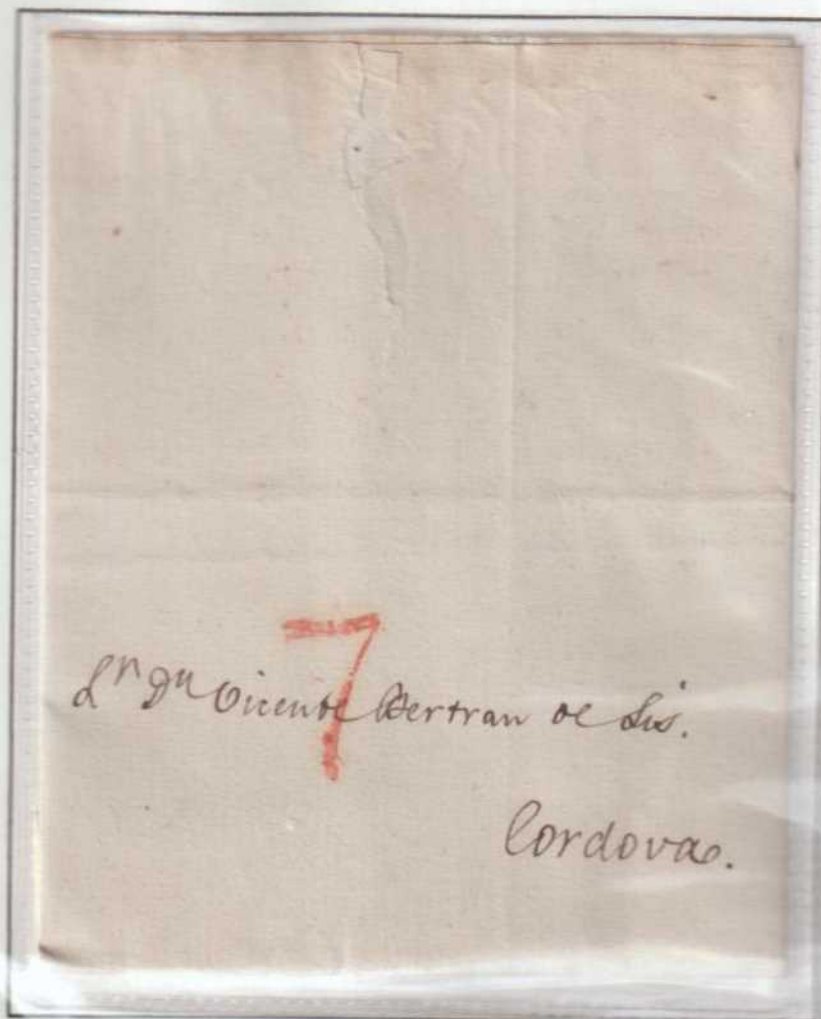 7
Sr Dn Vicente Bertran de Lis.
Cordova.